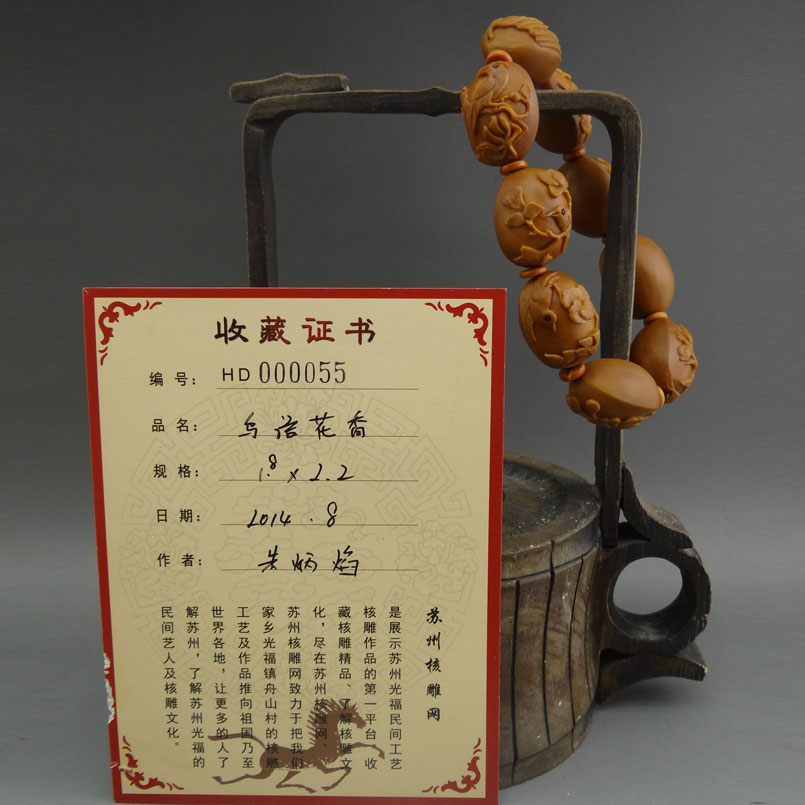 收藏证书
编号: HD 000055
品名: 鸟语花香
规格: 1.8 x 2.2
日期: 2014.8
作者: 朱炳焰
苏州核雕网
是展示苏州光福民间工艺
核雕作品的第一平台，收
藏核雕精品、了解核雕文
化，尽在苏州核雕网。
苏州核雕网致力于把我们
家乡光福镇舟山村的核雕
工艺及作品推向祖国乃至
世界各地，让更多的人了
解苏州，了解苏州光福的
民间艺人及核雕文化。